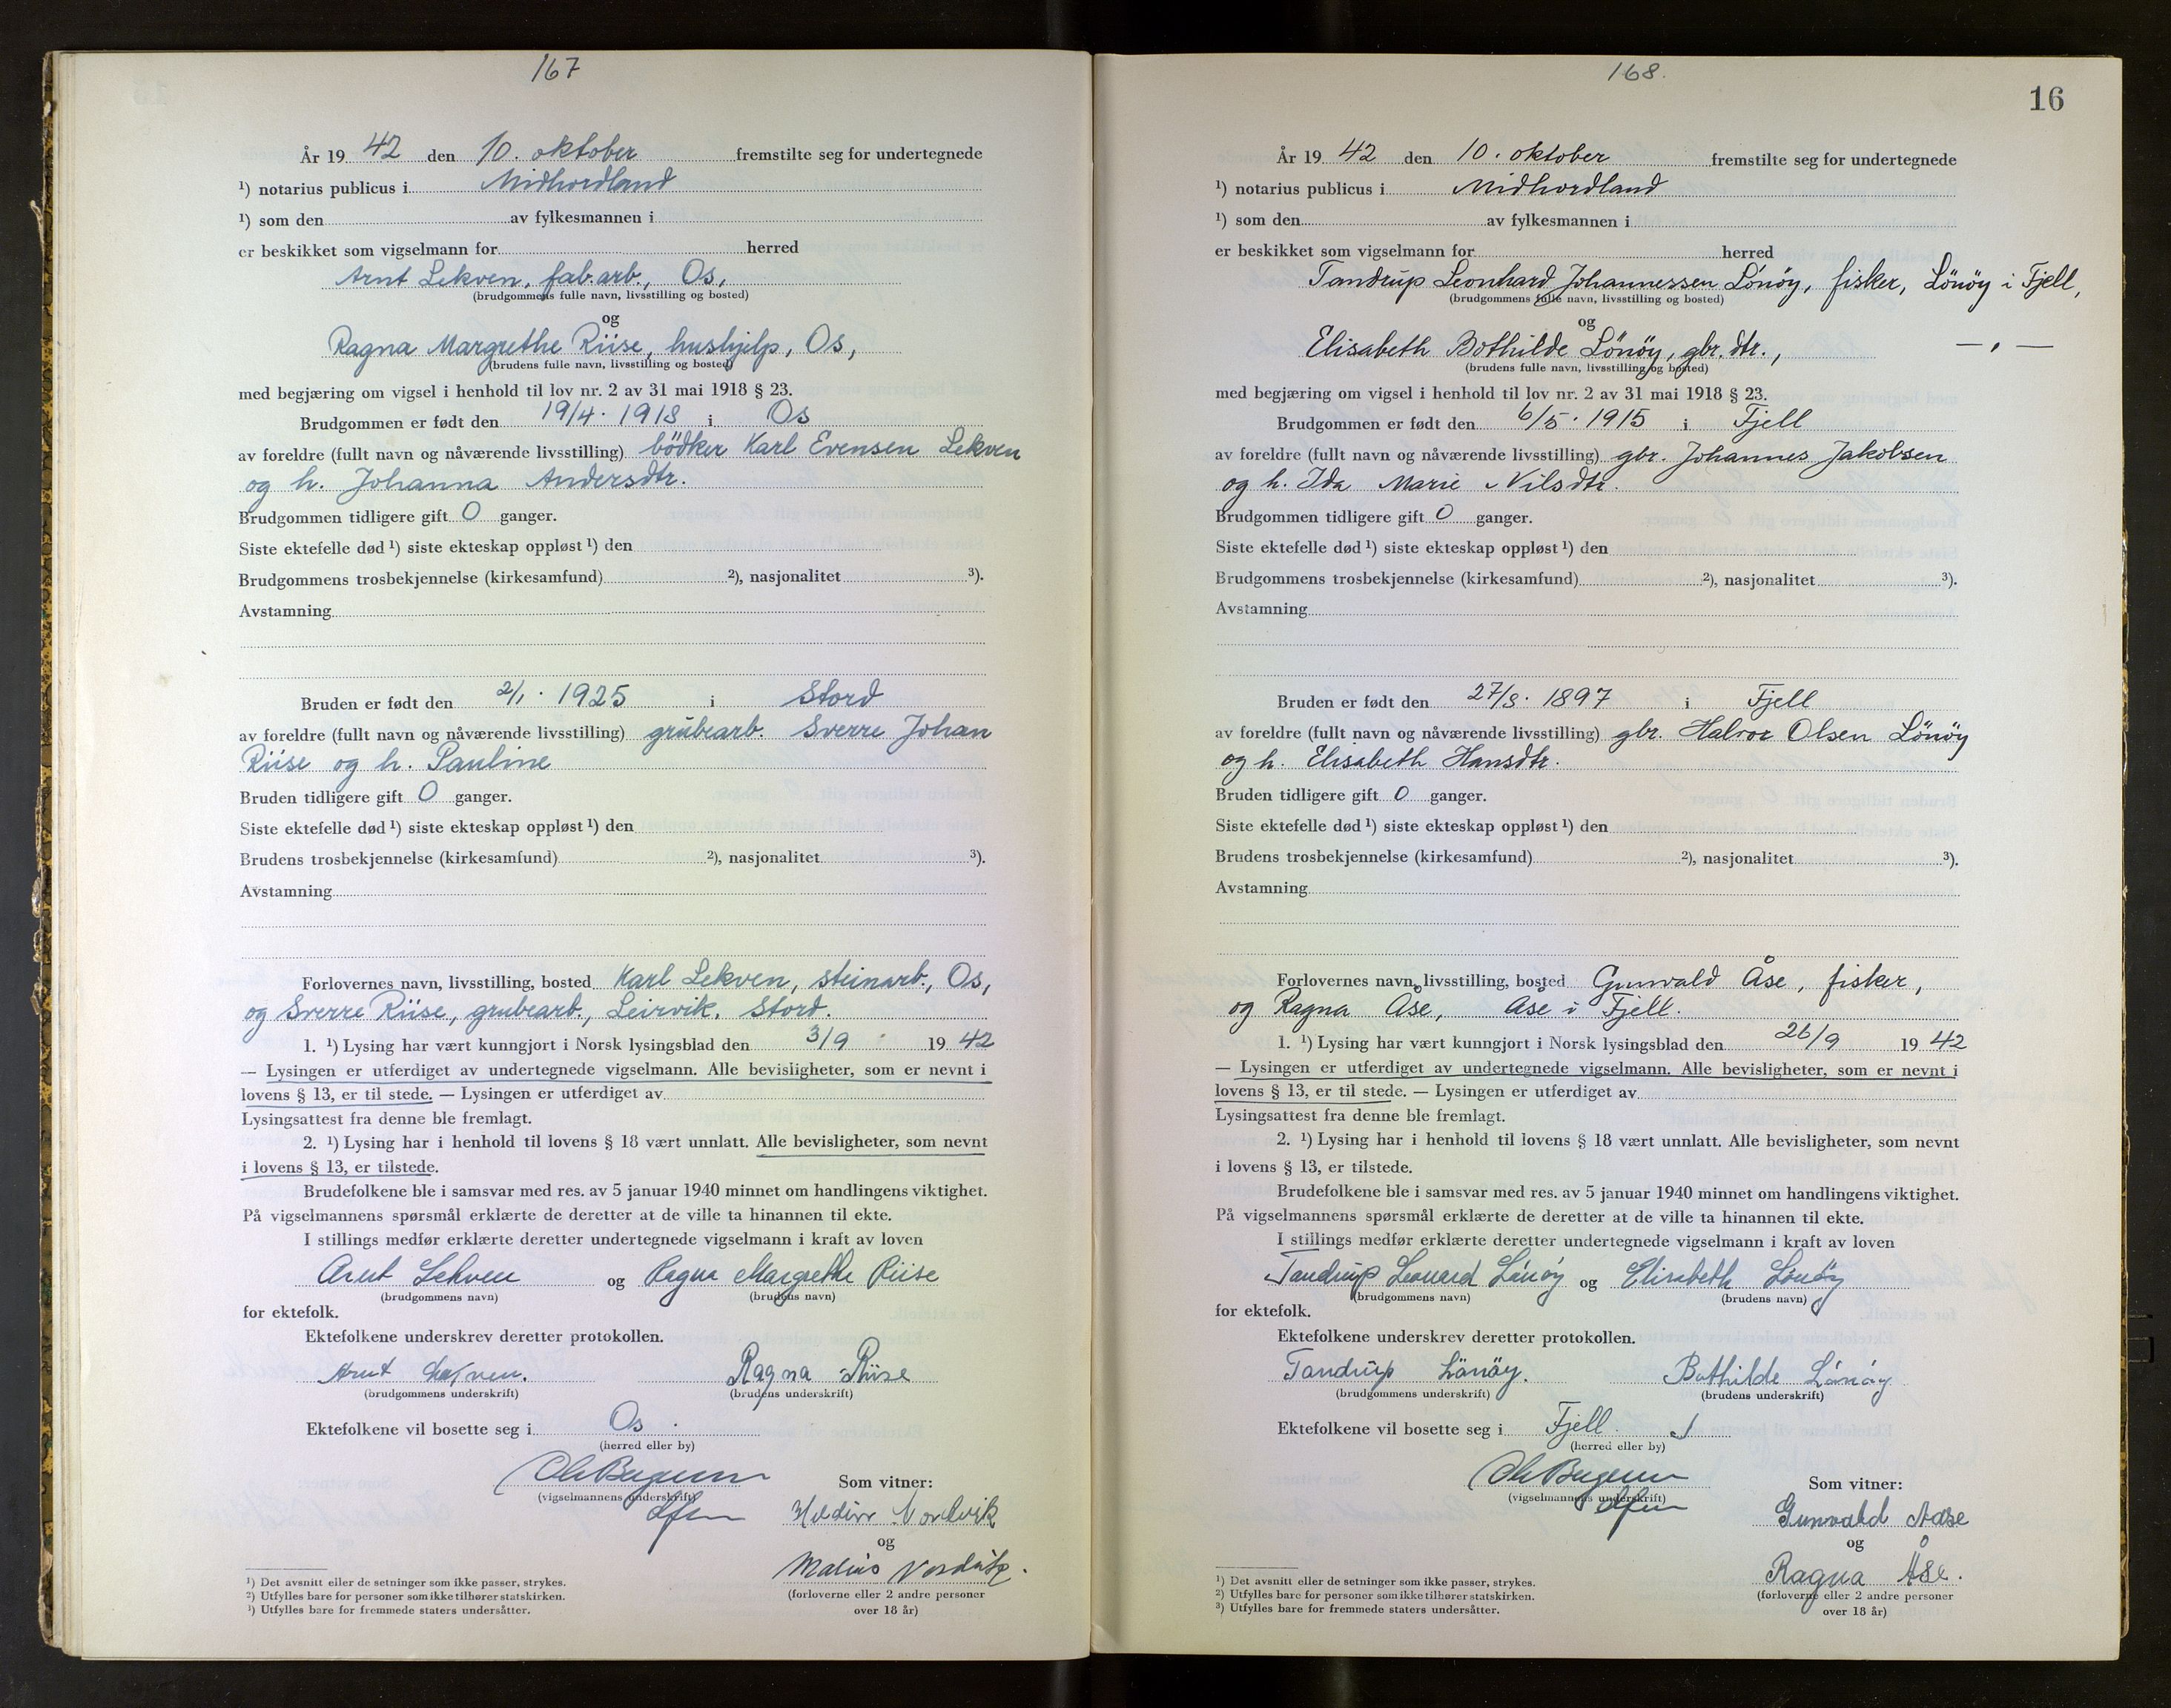 167
År 19 42 den 10. oktober fremstilte seg for undertegnede
¹) notarius publicus i Midhordland
¹) som den av fylkesmannen i
er beskikket som vigselmann for herred
Arnt Lekven, fab.arb., Os,
(brudgommens fulle navn, livsstilling og bosted)
og
Ragna Margrethe Riise, hushjelp, Os,
(brudens fulle navn, livsstilling og bosted)
med begjæring om vigsel i henhold til lov nr. 2 av 31 mai 1918 § 23.
Brudgommen er født den 19/4. 1918 i Os
av foreldre (fullt navn og nåværende livsstilling) bödker Karl Evensen Lekven
og h. Johanna Andersdtr.
Brudgommen tidligere gift 0 ganger.
Siste ektefelle død ¹) siste ekteskap oppløst ¹) den
Brudgommens trosbekjennelse (kirkesamfund) ²), nasjonalitet ³).
Avstamning
Bruden er født den 2/1. 1925 i Stord
av foreldre (fullt navn og nåværende livsstilling) grubearb. Sverre Johan
Riise og h. Pauline
Bruden tidligere gift 0 ganger.
Siste ektefelle død ¹) siste ekteskap oppløst ¹) den
Brudens trosbekjennelse (kirkesamfund) ²), nasjonalitet ³).
Avstamning
Forlovernes navn, livsstilling, bosted Karl Lekven, steinarb., Os,
og Sverre Riise, grubearb., Leirvik, Stord.
1. ¹) Lysing har vært kunngjort i Norsk lysingsblad den 3/9 19 42
— Lysingen er utferdiget av undertegnede vigselmann. Alle bevisligheter, som er nevnt i
lovens § 13, er til stede. — Lysingen er utferdiget av
Lysingsattest fra denne ble fremlagt.
2. ¹) Lysing har i henhold til lovens § 18 vært unnlatt. Alle bevisligheter, som nevnt
i lovens § 13, er tilstede.
Brudefolkene ble i samsvar med res. av 5 januar 1940 minnet om handlingens viktighet.
På vigselmannens spørsmål erklærte de deretter at de ville ta hinannen til ekte.
I stillings medfør erklærte deretter undertegnede vigselmann i kraft av loven
Arnt Lekven og Ragna Margrethe Riise
(brudgommens navn) (brudens navn)
for ektefolk.
Ektefolkene underskrev deretter protokollen.
Arnt Lekven. Ragna Riise
(brudgommens underskrift) (brudens underskrift)
Ektefolkene vil bosette seg i Os.
(herred eller by)
Som vitner:
(vigselmannens underskrift)
Nordvik
og
Nordvik.
(forloverne eller 2 andre personer
over 18 år)
¹) Det avsnitt eller de setninger som ikke passer, strykes.
²) Utfylles bare for personer som ikke tilhører statskirken.
³) Utfylles bare for fremmede staters undersåtter.
168.
16
År 19 42 den 10. oktober fremstilte seg for undertegnede
¹) notarius publicus i Midhordland
¹) som den av fylkesmannen i
er beskikket som vigselmann for herred
Tandrup Leonhard Johannessen Lönöy, fisker, Lönöy i Fjell,
(brudgommens fulle navn, livsstilling og bosted)
og
Elisabeth Bothilde Lönöy, gbr. dtr., — " —
(brudens fulle navn, livsstilling og bosted)
med begjæring om vigsel i henhold til lov nr. 2 av 31 mai 1918 § 23.
Brudgommen er født den 6/5. 1915 i Fjell
av foreldre (fullt navn og nåværende livsstilling) gbr. Johannes Jakobsen
og h. Ida Marie Nilsdtr.
Brudgommen tidligere gift 0 ganger.
Siste ektefelle død ¹) siste ekteskap oppløst ¹) den
Brudgommens trosbekjennelse (kirkesamfund) ²), nasjonalitet ³).
Avstamning
Bruden er født den 27/8. 1897 i Fjell
av foreldre (fullt navn og nåværende livsstilling) gbr. Halvor Olsen Lönöy
og h. Elisabeth Hansdtr.
Bruden tidligere gift 0 ganger.
Siste ektefelle død ¹) siste ekteskap oppløst ¹) den
Brudens trosbekjennelse (kirkesamfund) ²), nasjonalitet ³).
Avstamning
Forlovernes navn, livsstilling, bosted Gunvald Åse, fisker,
og Ragna Åse, Åse i Fjell.
1. ¹) Lysing har vært kunngjort i Norsk lysingsblad den 26/9 19 42
— Lysingen er utferdiget av undertegnede vigselmann. Alle bevisligheter, som er nevnt i
lovens § 13, er til stede. — Lysingen er utferdiget av
Lysingsattest fra denne ble fremlagt.
2. ¹) Lysing har i henhold til lovens § 18 vært unnlatt. Alle bevisligheter, som nevnt
i lovens § 13, er tilstede.
Brudefolkene ble i samsvar med res. av 5 januar 1940 minnet om handlingens viktighet.
På vigselmannens spørsmål erklærte de deretter at de ville ta hinannen til ekte.
I stillings medfør erklærte deretter undertegnede vigselmann i kraft av loven
Tandrup Leonard Lönöy og Elisabeth Lönöy
(brudgommens navn) (brudens navn)
for ektefolk.
Ektefolkene underskrev deretter protokollen.
Tandrup Lönöy. Bothilde Lönöy
(brudgommens underskrift) (brudens underskrift)
Ektefolkene vil bosette seg i Fjell.
(herred eller by)
Som vitner:
(vigselmannens underskrift)
Gunvald Aase
og
Ragna Åse.
(forloverne eller 2 andre personer
over 18 år)
¹) Det avsnitt eller de setninger som ikke passer, strykes.
²) Utfylles bare for personer som ikke tilhører statskirken.
³) Utfylles bare for fremmede staters undersåtter.